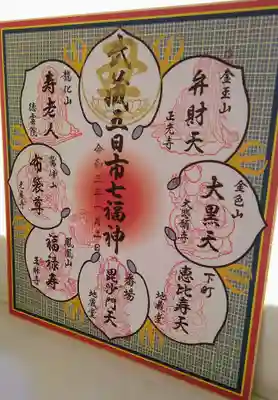 武蔵五日市七福神
弁財天
金玉山
正光寺
大黒天
金色山
大悲願寺
恵比寿天
下町
地蔵堂
毘沙門天
番場
地蔵堂
福禄寿
鳳凰山
玉林寺
布袋尊
光厳寺
寿老人
龍化山
徳雲院